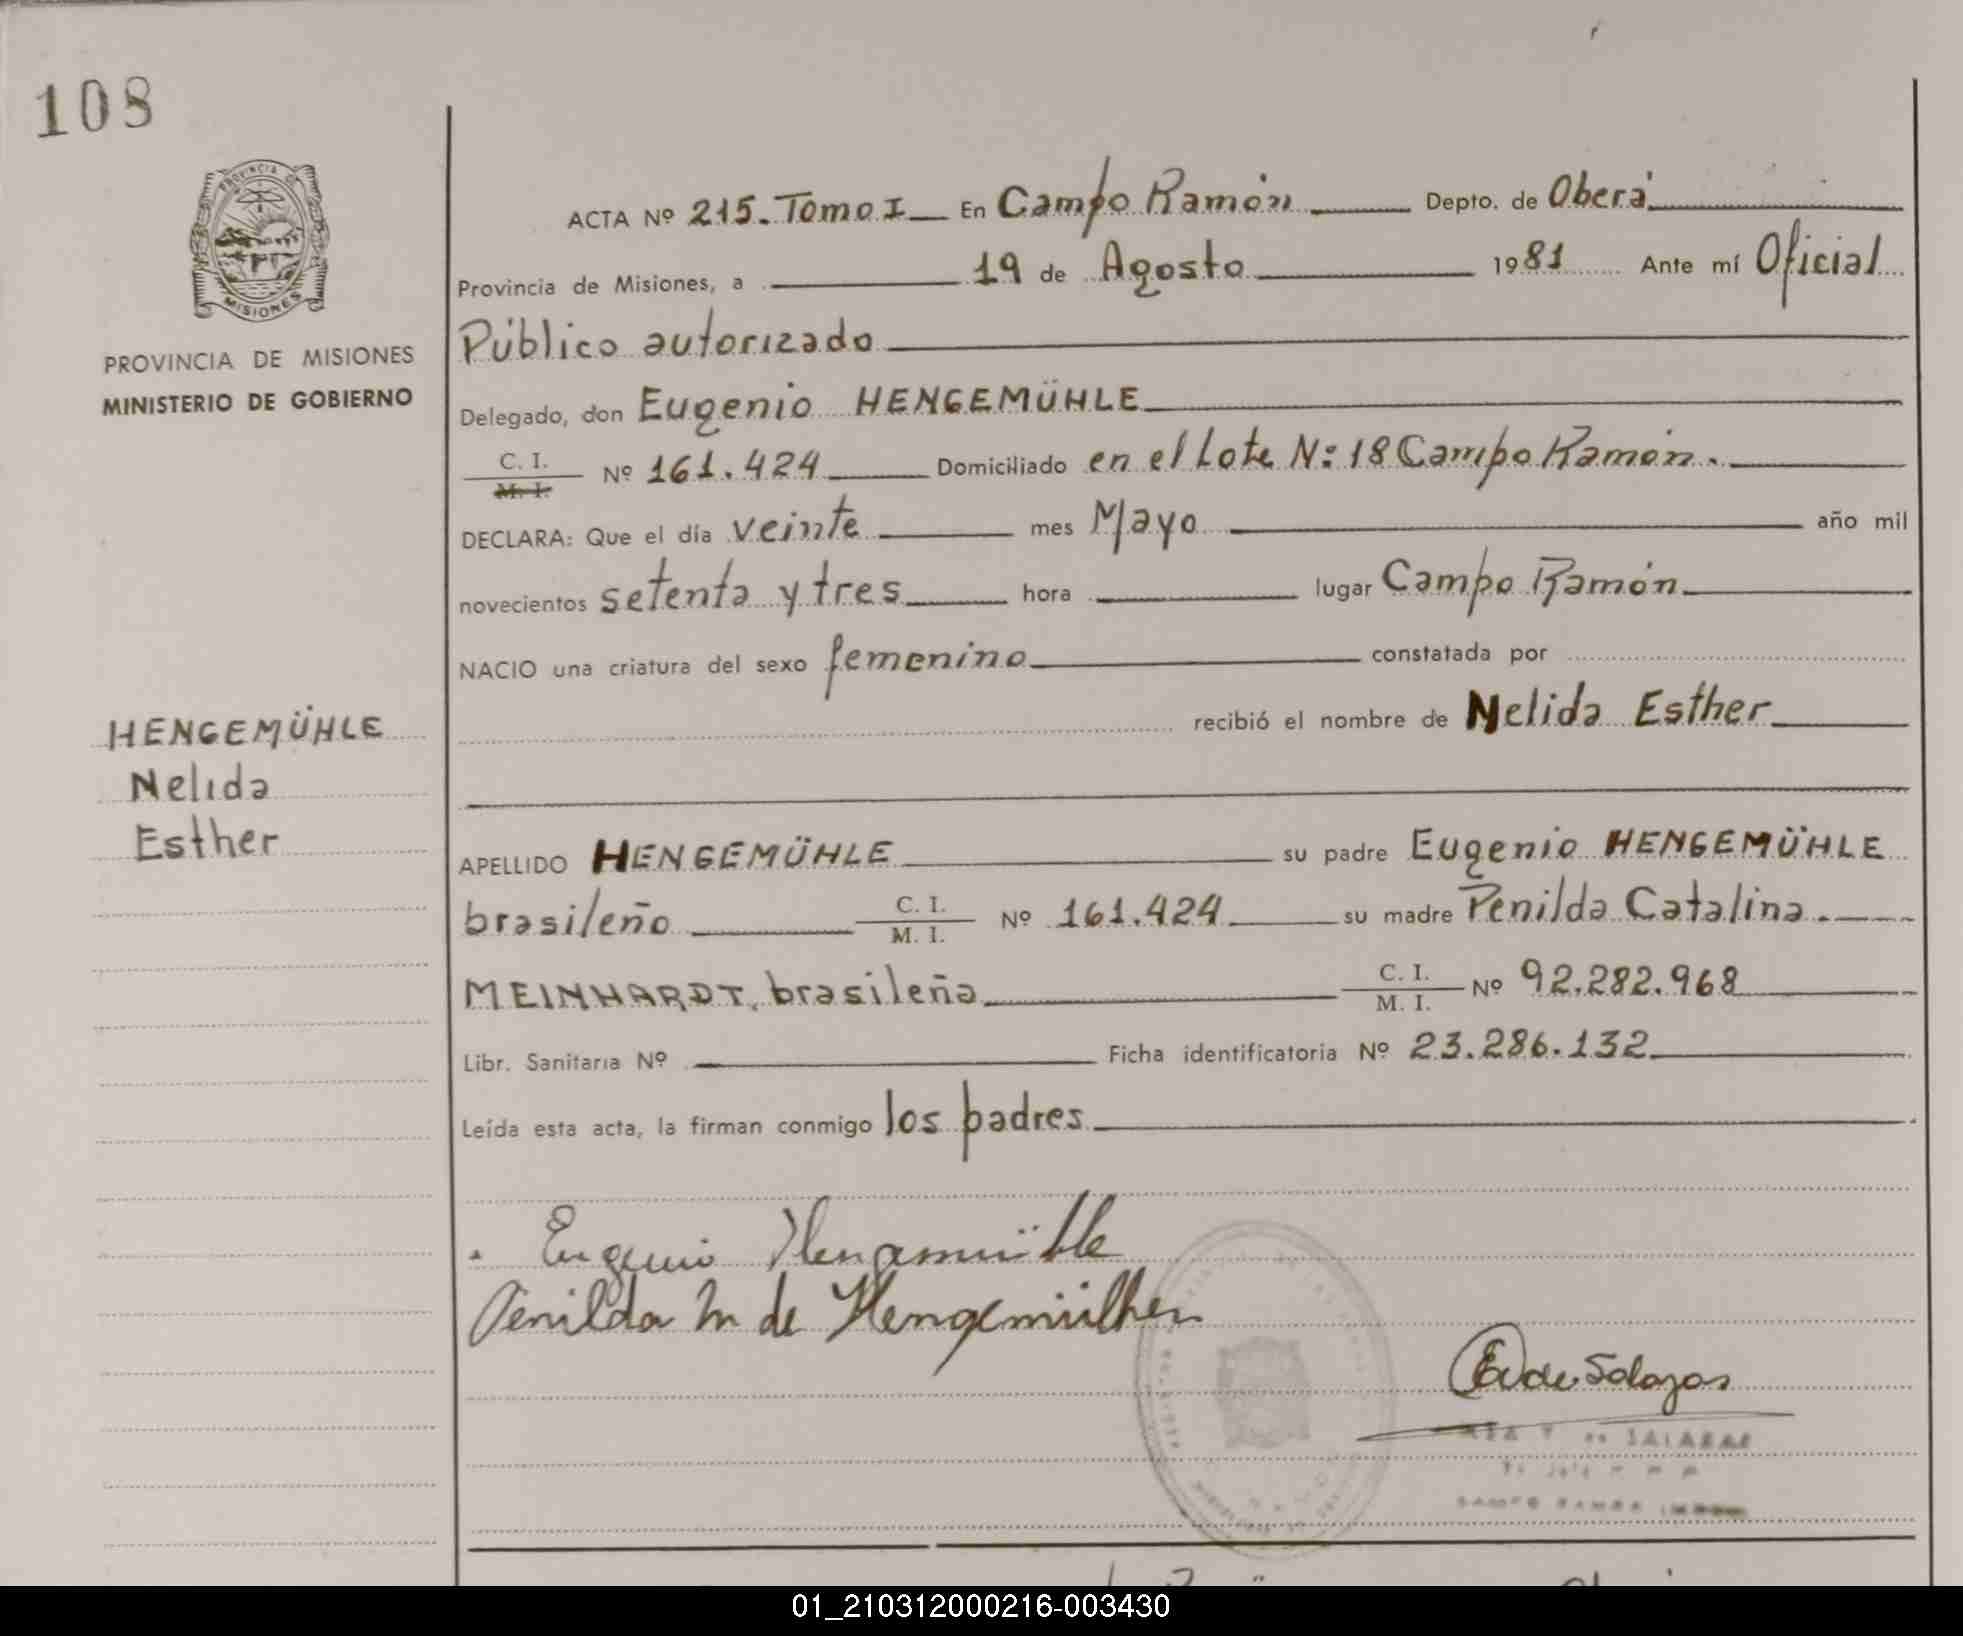 108
PROVINCIA DE MISIONES
PROVINCIA DE MISIONES
MINISTERIO DE GOBIERNO
ACTA Nº 215. Tomo I En Campo Ramón Depto. de Oberá
Provincia de Misiones, a 19 de Agosto 1981 Ante mí Oficial
Público autorizado
Delegado, don Eugenio HENGEMÜHLE
C. I. M. I. Nº 161.424 Domiciliado en el Lote N: 18 Campo Ramón.
DECLARA: Que el día veinte mes Mayo año mil
novecientos setenta y tres hora lugar Campo Ramón
NACIO una criatura del sexo femenino constatada por
recibió el nombre de Nelida Esther
HENGEMÜHLE
Nelida
Esther
APELLIDO HENGEMÜHLE su padre Eugenio HENGEMÜHLE
brasileño C. I. M. I. Nº 161.424 su madre Penilda Catalina.
MEINHARDT, brasileña C. I. M. I. Nº 92.282.968
Libr. Sanitaria Nº Ficha identificatoria Nº 23.286.132
Leída esta acta, la firman conmigo los padres
Eugenio Hengemühle
Penilda M de Hengemülhen
de Salazar
de SALAZAR
CAMPO RAMON
01_210312000216-003430